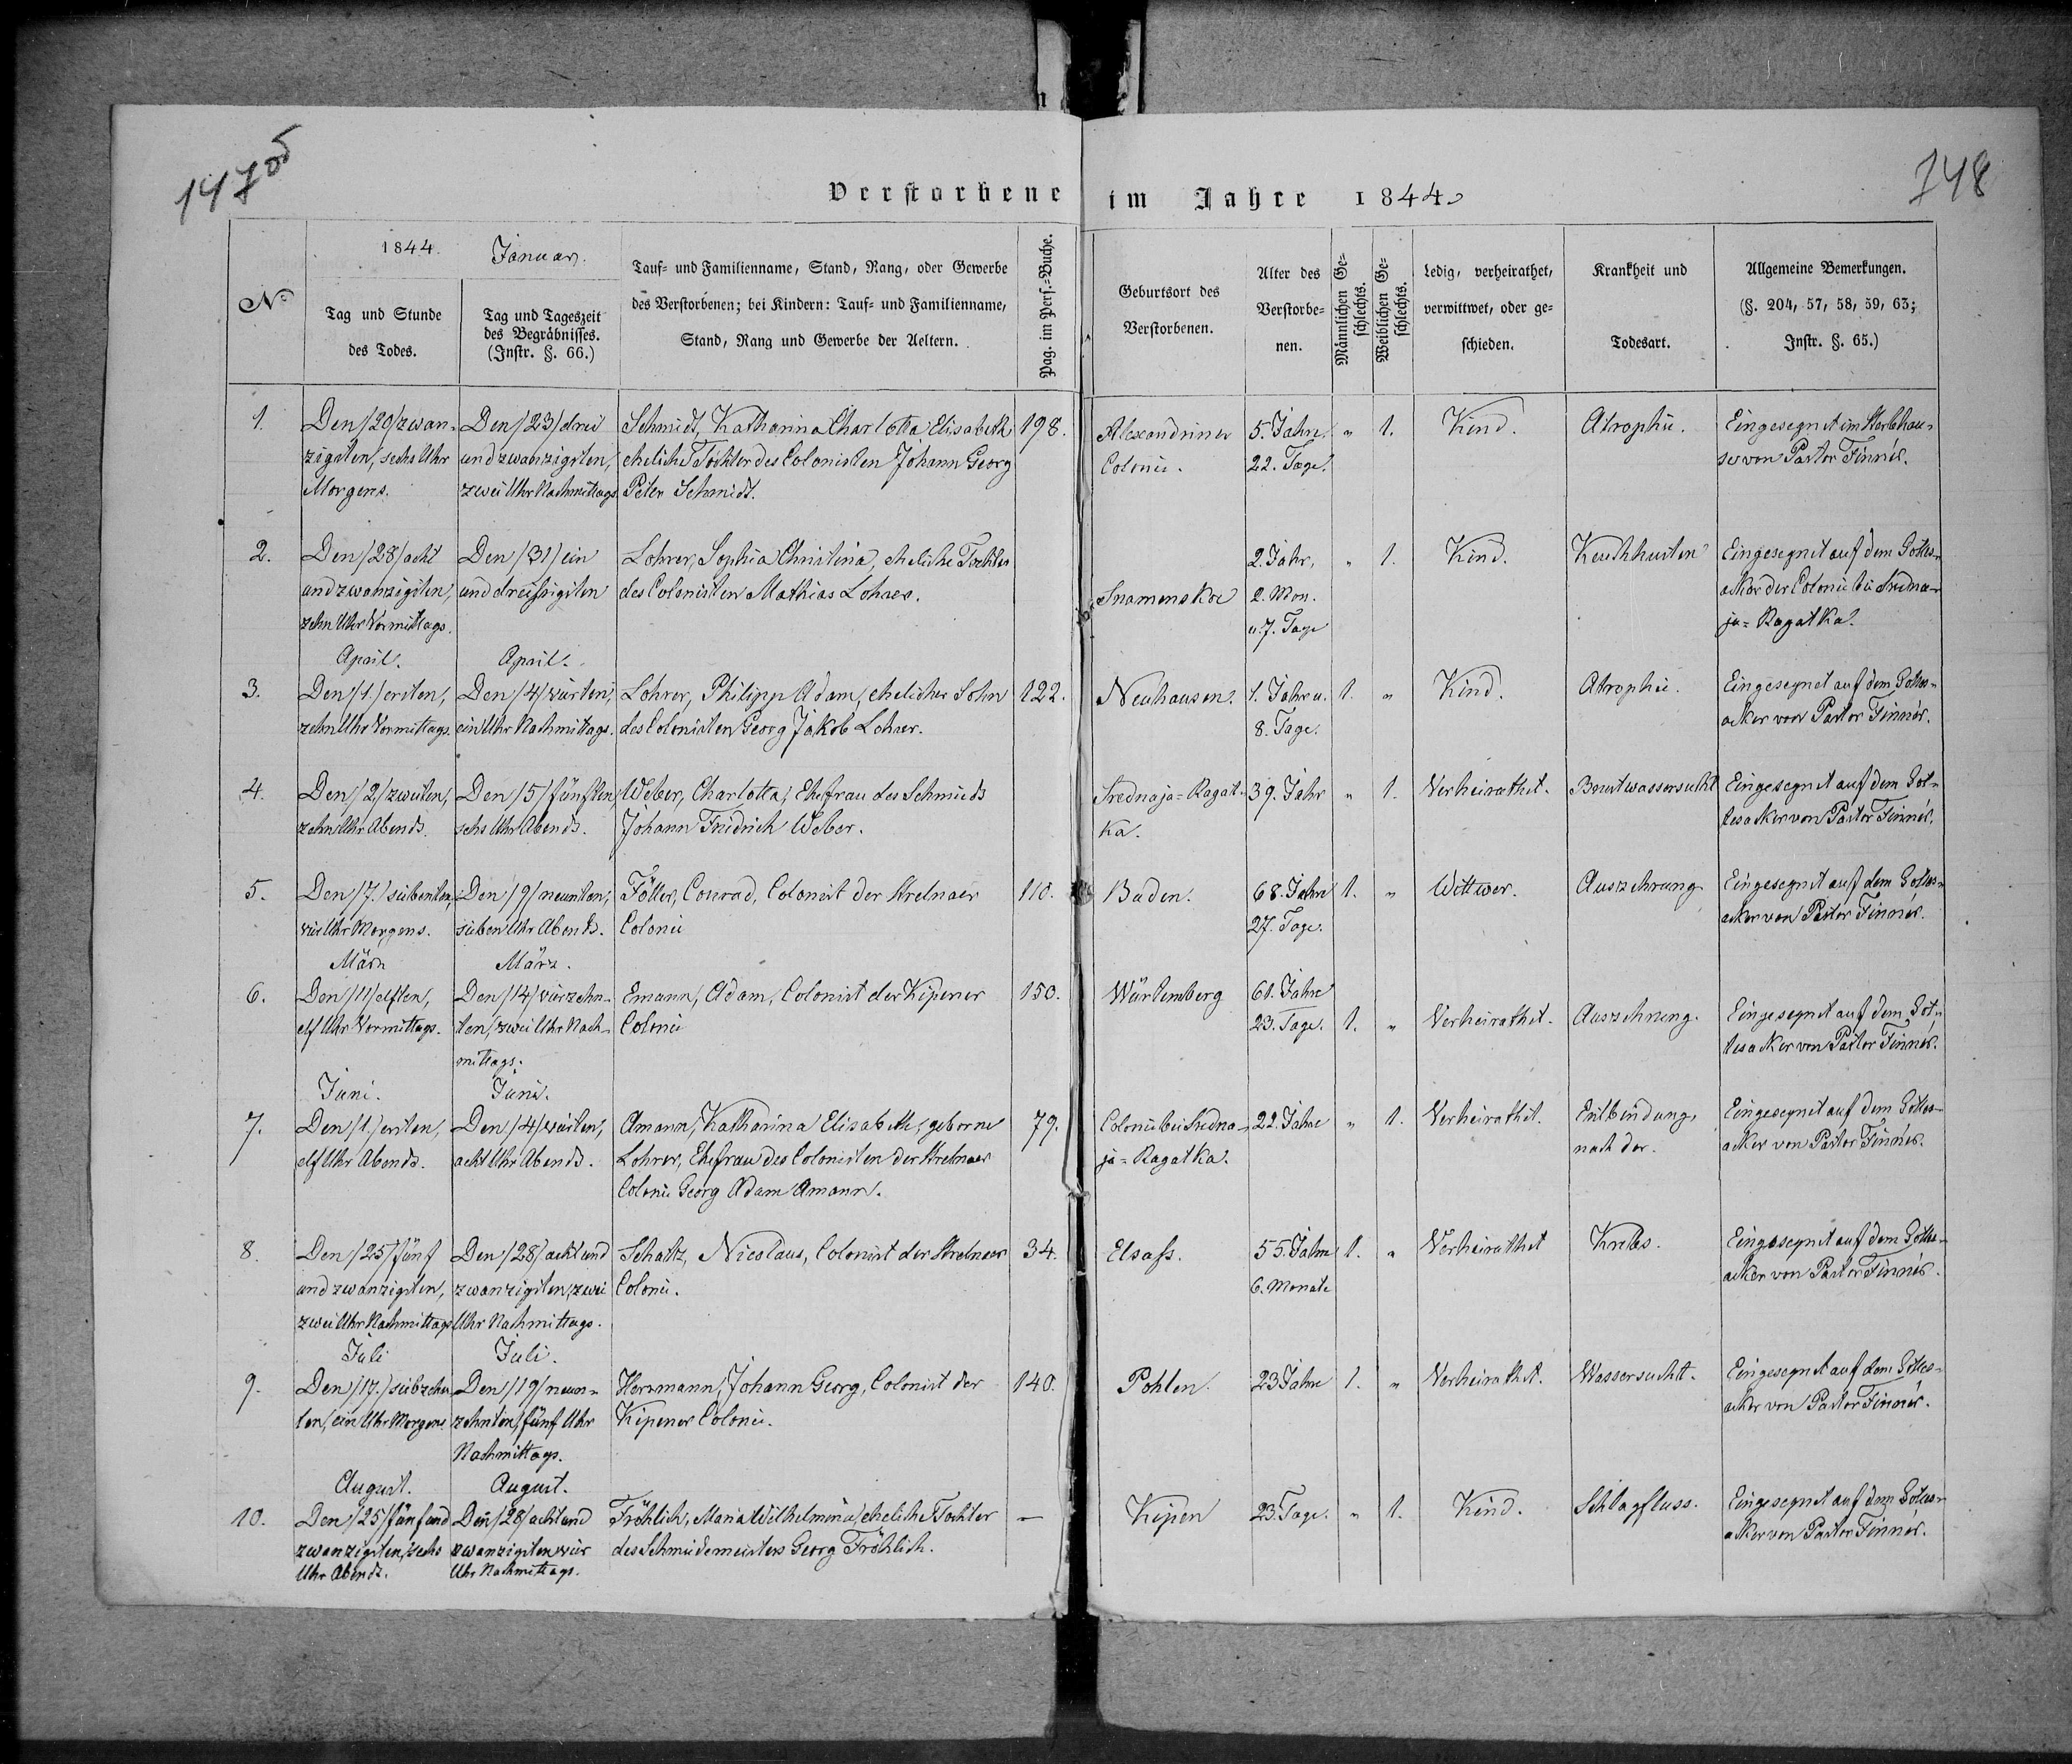 147 об
148
Verstorbene im Jahre 1844.
№
1844. Januar.
Tag und Stunde
des Todes.
Tag und Tageszeit
des Begräbnisses.
(Instr. §. 66.)
Tauf- und Familienname, Stand, Rang, oder Gewerbe
des Verstorbenen; bei Kindern: Tauf- und Familienname,
Stand, Rang und Gewerbe der Aeltern.
Pag. im Pers.-Buche.
Geburtsort des
Verstorbenen.
Alter des
Verstorbe-
nen.
Männlichen Ge-
schlechts.
Weiblichen Ge-
schlechts.
Ledig, verheirathet,
verwittwet, oder ge-
schieden.
Krankheit und
Todesart.
Allgemeine Bemerkungen.
(§. 204, 57, 58, 59, 63;
Instr. §. 65.)
1.
Den /20/ zwan-
zigsten, sechs Uhr
Morgens.
Den /23/ drei
und zwanzigsten,
zwei Uhr Nachmittags.
Schmidt, Katharina Charlotta Elisabeth
eheliche Tochter des Colonisten Johann Georg
Peter Schmidt.
198.
Alexandriner
Colonie.
5. Jahre.
22. Tage.
" 1.
Kind.
Atrophie.
Eingesegnet im Sterbehau-
se von Pastor Finnér.
2.
Den /28/ acht
und zwanzigsten,
zehn Uhr Vormittags.
Den /31/ ein
und dreißigsten
Lohrer, Sophia Christina, eheliche Tochter
des Colonisten Mathias Lohrer.
Snamenskoe
2. Jahr,
2. Mon.
u. 7. Tage
" 1.
Kind.
Keuchhusten
Eingesegnet auf dem Gottes-
acker der Colonie bei Sredna-
ja-Ragatka.
April.
April.
3.
Den /1./ ersten,
zehn Uhr Vormittags.
Den /4/ vierten,
ein Uhr Nachmittags.
Lohrer, Philipp Adam, ehelicher Sohn
des Colonisten Georg Jakob Lohrer.
122.
Neuhausen.
1. Jahr u.
8. Tage.
1. "
Kind.
Atrophie.
Eingesegnet auf dem Gottes-
acker von Pastor Finnér.
4.
Den /2/ zweiten,
zehn Uhr Abends.
Den /5/ fünften
sechs Uhr Abends.
Weber, Charlotta, Ehefrau des Schmieds
Johann Friedrich Weber.
Srednaja-Ragat-
ka.
39. Jahr
" 1.
Verheirathet.
Brustwassersucht
Eingesegnet auf dem Got-
tesacker von Pastor Finnér.
5.
Den /7./ siebenten,
vier Uhr Morgens.
Den /9/ neunten,
sieben Uhr Abends.
Föller, Conrad, Colonist der Strelnaer
Colonie
110.
Baden.
68. Jahre
27. Tage.
1. "
Wittwer.
Auszehrung
Eingesegnet auf dem Gottes-
acker von Pastor Finnér.
März
März.
6.
Den /11/ elften,
elf Uhr Vormittags.
Den /14/ vierzehn-
ten, zwei Uhr Nach-
mittags.
Emann, Adam, Colonist der Kipener
Colonie
150.
Würtemberg
61. Jahre
23. Tage.
1. "
Verheirathet.
Auszehrung.
Eingesegnet auf dem Got-
tesacker von Pastor Finnér.
Juni.
Juni.
7.
Den /1./ ersten,
elf Uhr Abends.
Den /4/ vierten,
acht Uhr Abends.
Amann, Katharina Elisabeth, geborne
Lohrer, Ehefrau des Colonisten der Strelnaer
Colonie Georg Adam Amann.
79.
Colonie bei Sredna-
ja-Ragatka.
22. Jahre
" 1.
Verheirathet.
Entbindung,
nach der.
Eingesegnet auf dem Gottes-
acker von Pastor Finnér.
8.
Den /25/ fünf
und zwanzigsten,
zwei Uhr Nachmittags
Den /28/ acht und
zwanzigsten, zwei
Uhr Nachmittags.
Schaltz, Nicolaus, Colonist der Strelnaer
Colonie.
34.
Elsaß.
55. Jahre
6. Monate
1. "
Verheirathet
Krebs.
Eingesegnet auf dem Gottes-
acker von Pastor Finnér.
Juli
Juli.
9.
Den /17./ siebzehn-
ten, ein Uhr Morgens
Den /19/ neun-
zehnten, fünf Uhr
Nachmittags.
Herrmann, Johann Georg, Colonist der
Kipener Colonie.
140.
Pohlen.
23 Jahre
1. "
Verheirathet.
Wassersucht.
Eingesegnet auf dem Gottes-
acker von Pastor Finnér.
August.
August.
10.
Den /25/ fünf und
zwanzigsten, sechs
Uhr Abends.
Den /28/ acht und
zwanzigsten, vier
Uhr Nachmittags.
Fröhlich, Maria Wilhelmina, eheliche Tochter
des Schmiedemeisters Georg Fröhlich.
—
Kipen
23. Tage.
" 1.
Kind.
Schlagfluss.
Eingesegnet auf dem Gottes-
acker von Pastor Finnér.